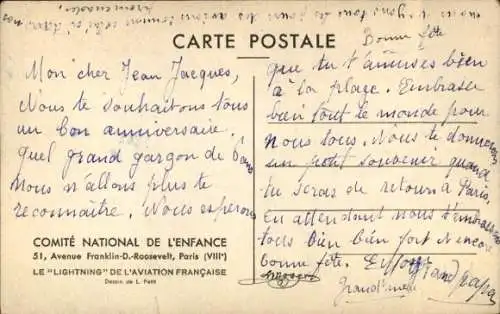 nous voyons tous les jours les avions comme celui ci dans nos
promenades.
CARTE POSTALE
Bonne fête
Mon cher Jean Jacques,
Nous te souhaitons tous
un bon anniversaire.
Quel grand garçon de 6 ans
Nous n'allons plus te
reconnaître. Nous esperons
que tu t'amuses bien
à la plage. Embrasse
bien tout le monde pour
nous tous. Nous te donnerons
un petit souvenir quand
tu seras de retour à Paris,
En attendant nous t'embrassons
tous bien bien fort et encore
bonne fête.
Grand'mère
Grand papa
COMITÉ NATIONAL DE L'ENFANCE
51, Avenue Franklin-D.-Roosevelt, Paris (VIIIᵉ)
LE "LIGHTNING" DE L'AVIATION FRANÇAISE
Dessin de L. Petit